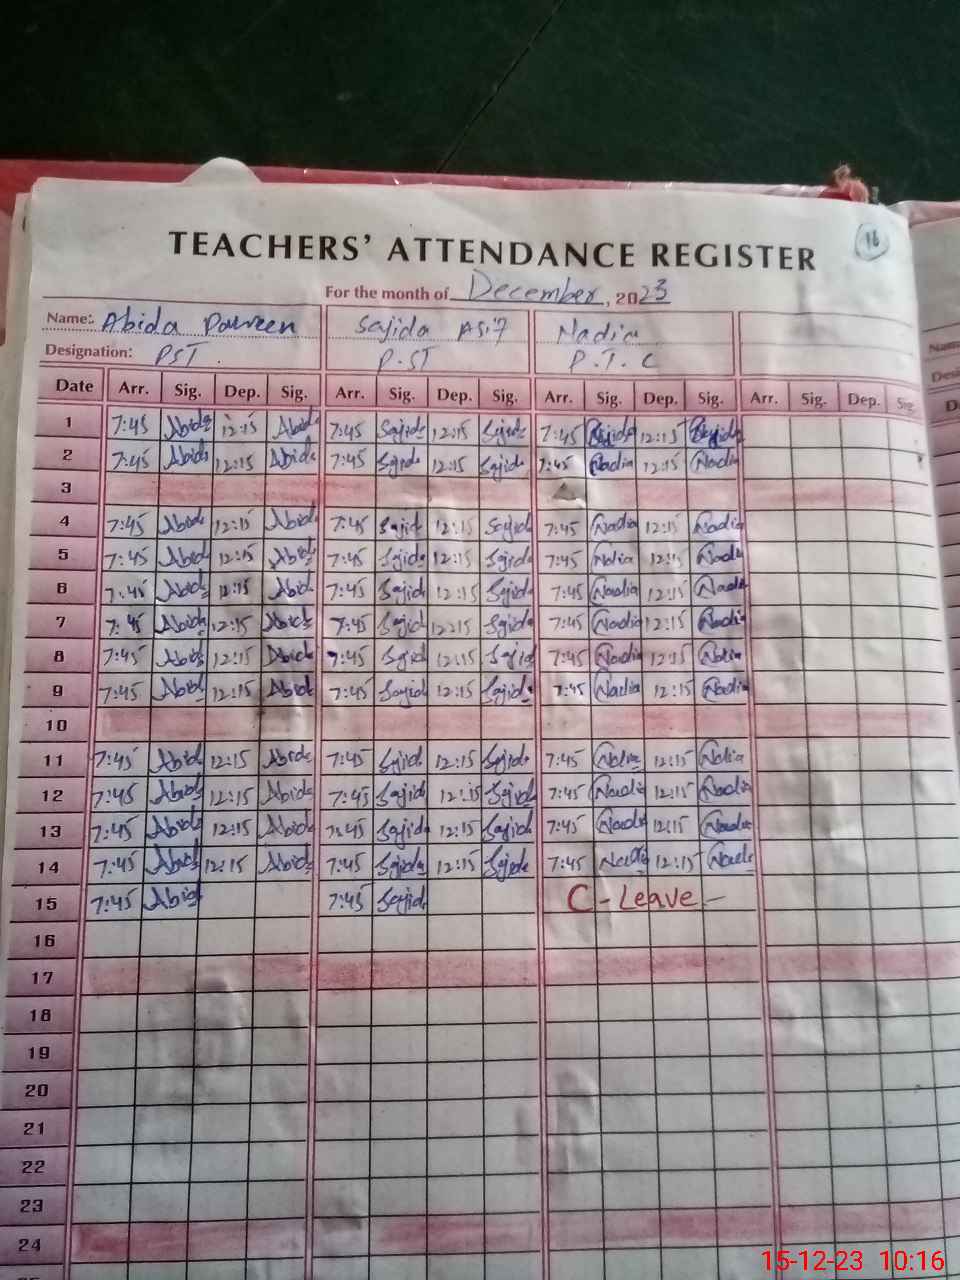 TEACHERS' ATTENDANCE REGISTER 16
For the month of December, 2023
Name: Abida Parveen Sajida Asif Nadia
Designation: PST P.ST P.T.C
Date Arr. Sig. Dep. Sig. Arr. Sig. Dep. Sig. Arr. Sig. Dep. Sig. Arr. Sig. Dep. Sig.
1 7:45 Abida 12:15 Abida 7:45 Sajida 12:15 Sajida 7:45 12:15
2 7:45 Abida 12:15 Abida 7:45 Sajida 12:15 Sajida 7:45 Nadia 12:15 Nadia
3
4 7:45 Abida 12:15 Abida 7:45 Sajid 12:15 Sajida 7:45 Nadia 12:15 Nadia
5 7:45 Abid 12:15 Abida 7:45 Sajida 12:15 Sajida 7:45 Nadia 12:15 Nadia
6 7:45 Abida 12:15 Abida 7:45 Sajida 12:15 Sajida 7:45 Nadia 12:15 Nadia
7 7:45 Abida 12:15 Abida 7:45 Sajid 12:15 Sajida 7:45 Nadia 12:15 Nadia
8 7:45 Abida 12:15 Abida 7:45 Sajid 12:15 Sajid 7:45 Nadia 12:15 Nadia
9 7:45 Abid 12:15 Abida 7:45 Sajid 12:15 Sajida 7:45 Nadia 12:15 Nadia
10
11 7:45 Abid 12:15 Abida 7:45 Sajid 12:15 Sajida 7:45 Nadia 12:15 Nadia
12 7:45 Abida 12:15 Abida 7:45 Sajid 12:15 Sajida 7:45 Nadia 12:15 Nadia
13 7:45 Abida 12:15 Abida 7:45 Sajida 12:15 Sajida 7:45 Nadia 12:15 Nadia
14 7:45 Abida 12:15 Abida 7:45 Sajida 12:15 Sajida 7:45 Nadia 12:15 Nadia
15 7:45 Abid 7:45 Sajid C-Leave-
16
17
18
19
20
21
22
23
24
15-12-23 10:16